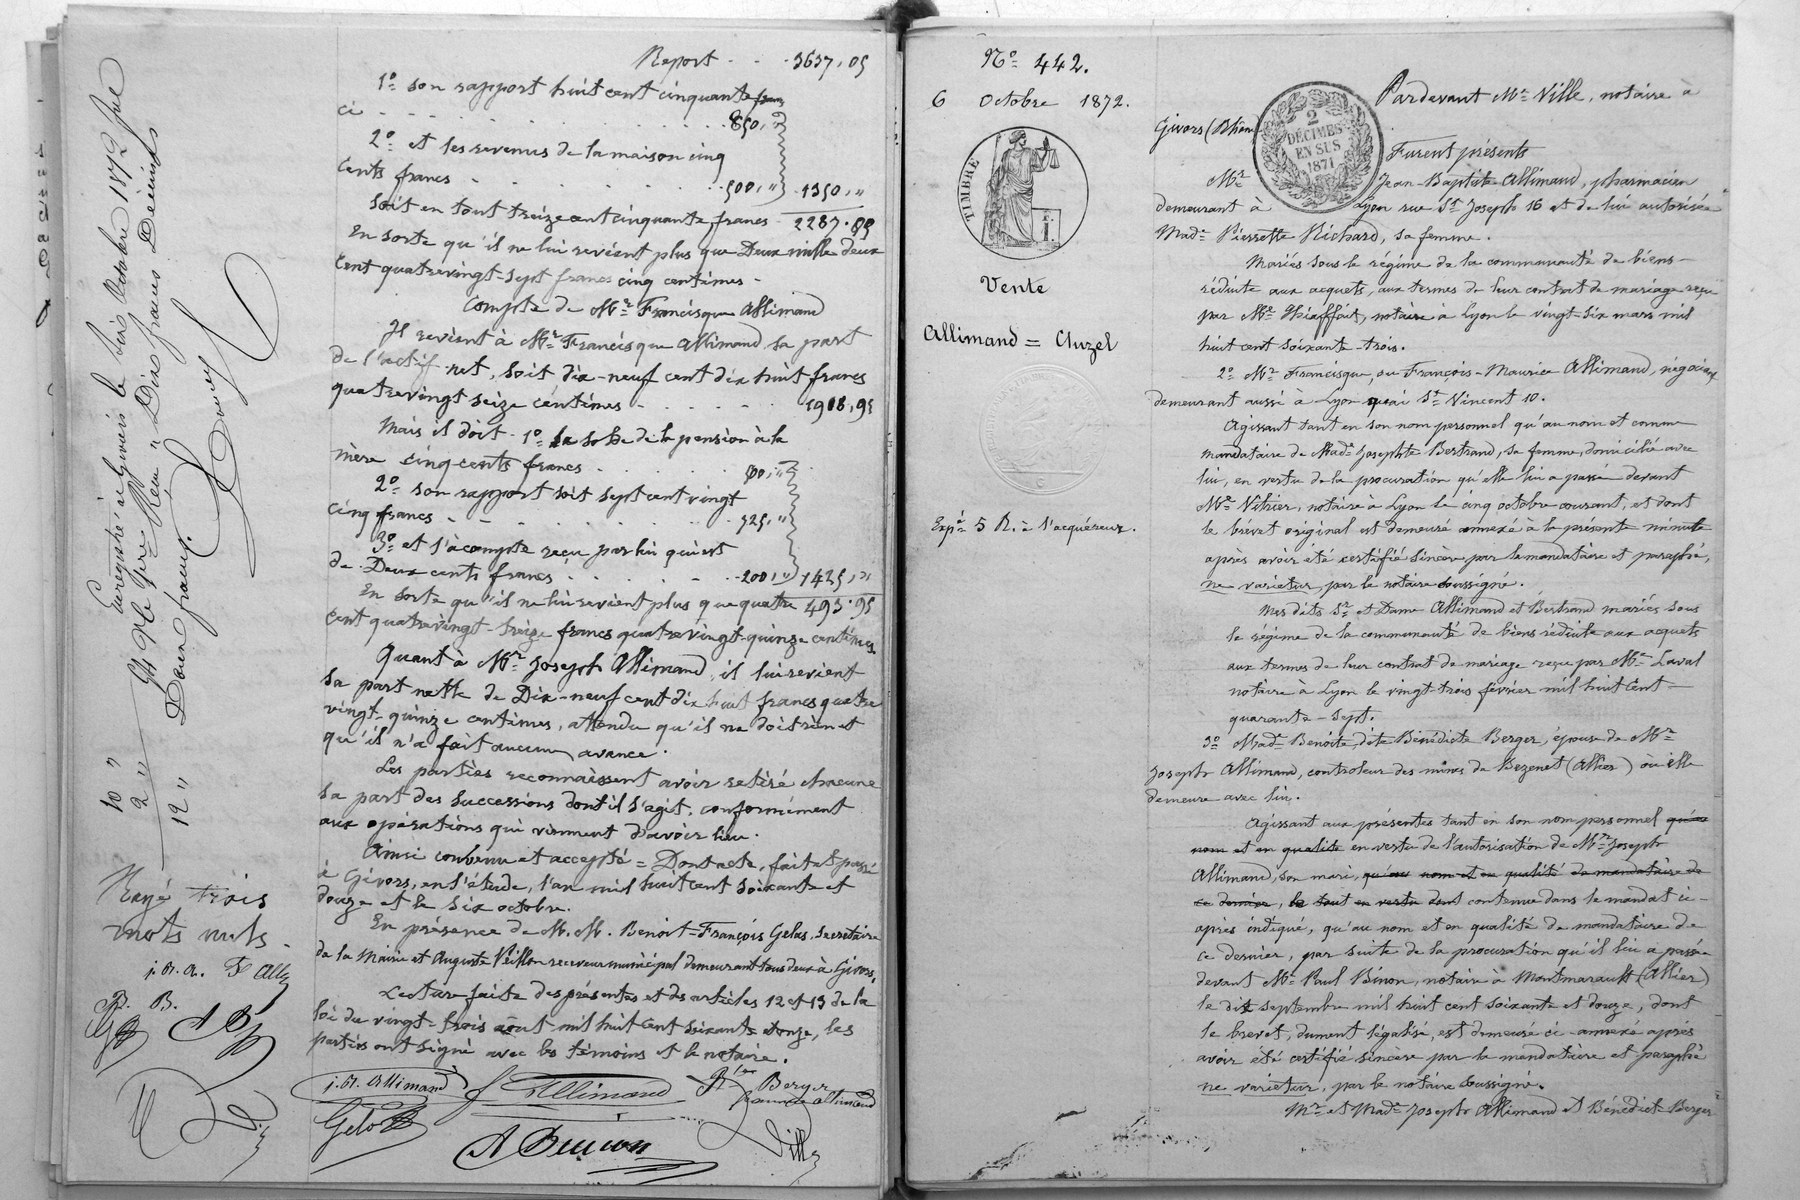 Report . . . 3637,05
1º son rapport huit cent cinquante francs
ci . . . . . . . 850,"
2º et les revenus de la maison cinq
cents francs . . . . . 500," 1350,"
Soit en tout treize cent cinquante francs . 2287.05
En sorte qu'il ne lui revient plus que Deux mille deux
cent quatrevingt-sept francs cinq centimes -
Compte de Mr Francisque Allimand
Il revient à Mr Francisque Allimand sa part
de l'actif net, soit dix-neuf cent dix huit francs
quatrevingt seize centimes . . . . 1918,95
Mais il doit - 1º la solde de la pension à la
mère cinq cents francs . . . . . 500,"
2º son rapport soit sept cent vingt
cinq francs . . . . . . 725,"
3º et l'àcompte reçu par lui qui est
de Deux cents francs . . . . . 200," 1425,"
En sorte qu'il ne lui revient plus que quatre 493.95
cent quatrevingt-treize francs quatrevingt-quinze centimes.
Quant à Mr Joseph Allimand, il lui revient
sa part nette de Dix-neuf cent dix huit francs quatre
vingt-quinze centimes, attendu qu'il ne doit rien et
qu'il n'a fait aucun avance.
Les parties reconnaissent avoir retiré chacune
sa part des successions dont il s'agit, conformément
aux opérations qui viennent d'avoir lieu.
Ainsi convenu et accepté = Dont acte, fait et passé
à Givors, en l'étude, l'an mil huit cent soixante et
douze et le six octobre.
En présence de M.M. Benoit-François Gelas, Secrétaire
de la Mairie et Auguste Veillon receveur municipal demeurant tous deux à Givors,
Lecture faite des présentes et des articles 12 et 13 de la
loi du vingt-trois aout mil huit cent soixante et onze, les
parties ont signé avec les témoins et le notaire.
j.Bt. Allimand
F Allimand
Berger
femme Allimand
Gelas
Ville
Enregistré à Givors le dix Octobre 1872 fol
Dix francs Décimes
Deux francs.
10 "
2 "
12 "
Rayé trois
mots nuls.
j.Bt.A. F All
B.
Nº 442.
6 Octobre 1872.
TIMBRE
Vente
Allimand = Cluzel
Expé 5 R. à l'acquéreur.
2
DÉCIMES
EN SUS
1871
Pardevant Me Ville, notaire à
Givors (Rhône
Furent présents
Mr Jean Baptiste Allimand, pharmacien
demeurant à Lyon rue St Joseph 16 et de lui autorisée
Made Pierrette Richard, sa femme.
Mariés sous le régime de la communauté de biens-
réduite aux acquets, aux termes de leur contrat de mariage reçu
par Me Hiaffait, notaire à Lyon le vingt-six mars mil
huit cent soixante-trois.
2º Mr Francisque, ou François-Maurice Allimand, négociant
demeurant aussi à Lyon quai St Vincent 10.
Agissant tant en son nom personnel qu'au nom et comme
mandataire de Made Josephte Bertrand, sa femme, domiciliée avec
lui, en vertu de la procuration qu'elle lui a passé devant
Me Vihier, notaire à Lyon le cinq octobre courant, et dont
le brevet original est demeuré annexé à la présente minute
après avoir été certifié sincère par le mandataire et paraphé,
ne varietur, par le notaire soussigné.
Mes dits Sr et Dame Allimand et Bertrand mariés sous
le régime de la communauté de biens réduite aux acquets
aux termes de leur contrat de mariage reçu par Me Laval
notaire à Lyon le vingt-trois février mil huit cent-
quarante-sept.
3º Made Benoite, dite Bénédicte Berger, épouse de Mr
Joseph Allimand, controleur des mines de Bezenet (Allier) où elle
demeure avec lui.
Agissant aux présentes tant en son nom personnel qu'au
nom et en qualité en vertu de l'autorisation de Mr Joseph
Allimand, son mari, qu'au nom et en qualité de mandataire de
ce dernier, le tout en vertu dont contenue dans le mandat ci-
après indiqué, qu'au nom et en qualité de mandataire de
ce dernier, par suite de la procuration qu'il lui a passée
devant Me Paul Binon, notaire à Montmarault (Allier)
le dix septembre mil huit cent soixante et douze, dont
le brevet, dument légalisé, est demeuré ci-annexé après
avoir été certifié sincère par la mandataire et paraphé
ne varietur, par le notaire soussigné.
Mr et Made Joseph Allimand et Bénédicte Berger